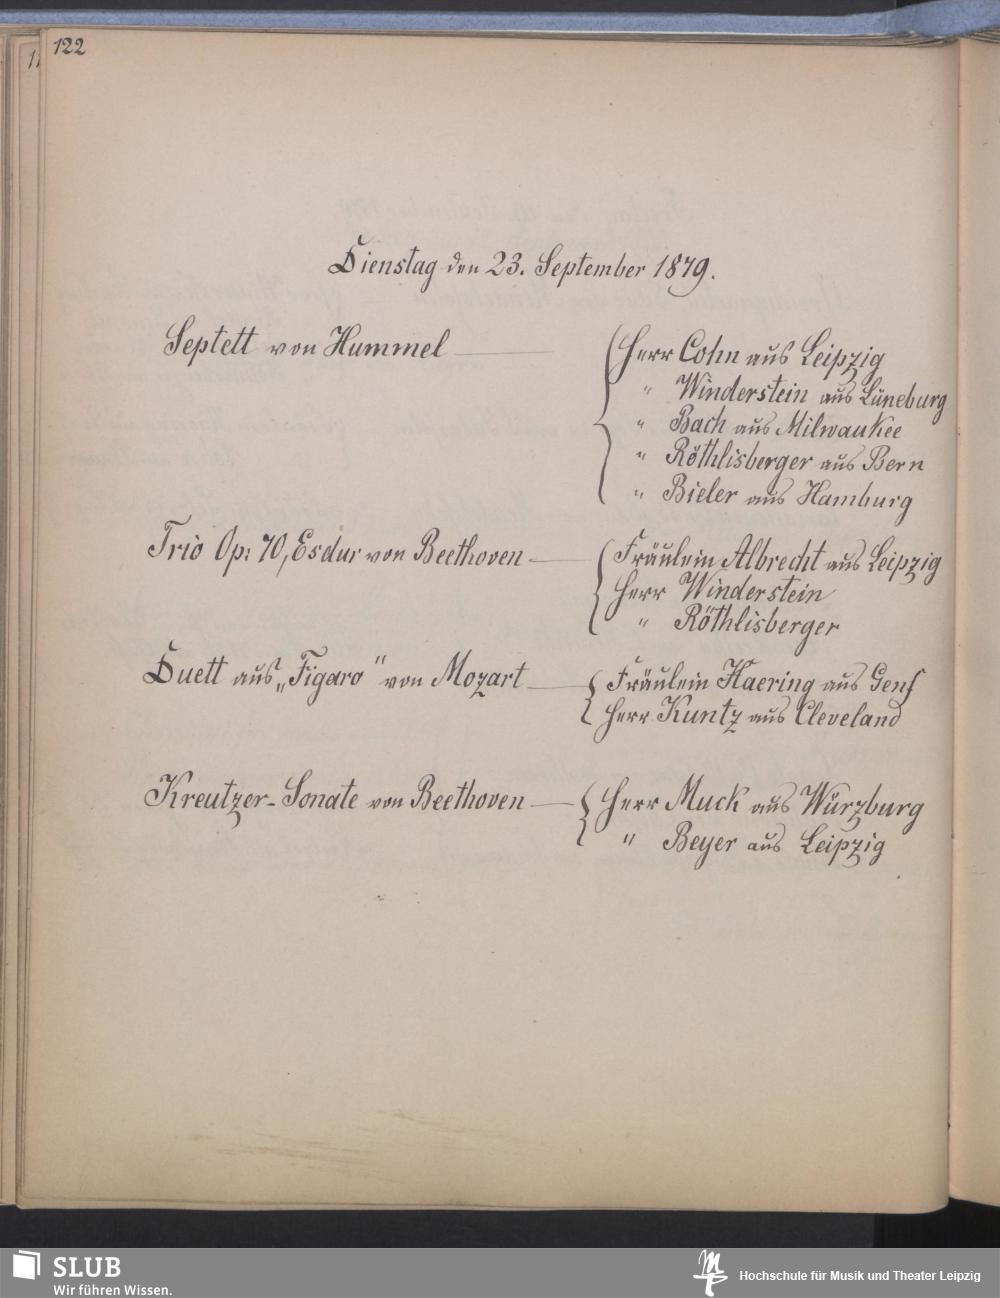 122
Dienstag den 23. September 1879.
Septett von Hummel — Herr Cohn aus Leipzig
" Winderstein aus Lüneburg
" Bach aus Milwaukee
" Röthlisberger aus Bern
" Bieler aus Hamburg
Trio Op: 70, Esdur von Beethoven — Fräulein Albrecht aus Leipzig
Herr Winderstein
" Röthlisberger
Duett aus „Figaro" von Mozart — Fräulein Haering aus Genf
Herr Kuntz aus Cleveland
Kreutzer-Sonate von Beethoven — Herr Muck aus Würzburg
" Beyer aus Leipzig
SLUB
Wir führen Wissen.
Hochschule für Musik und Theater Leipzig